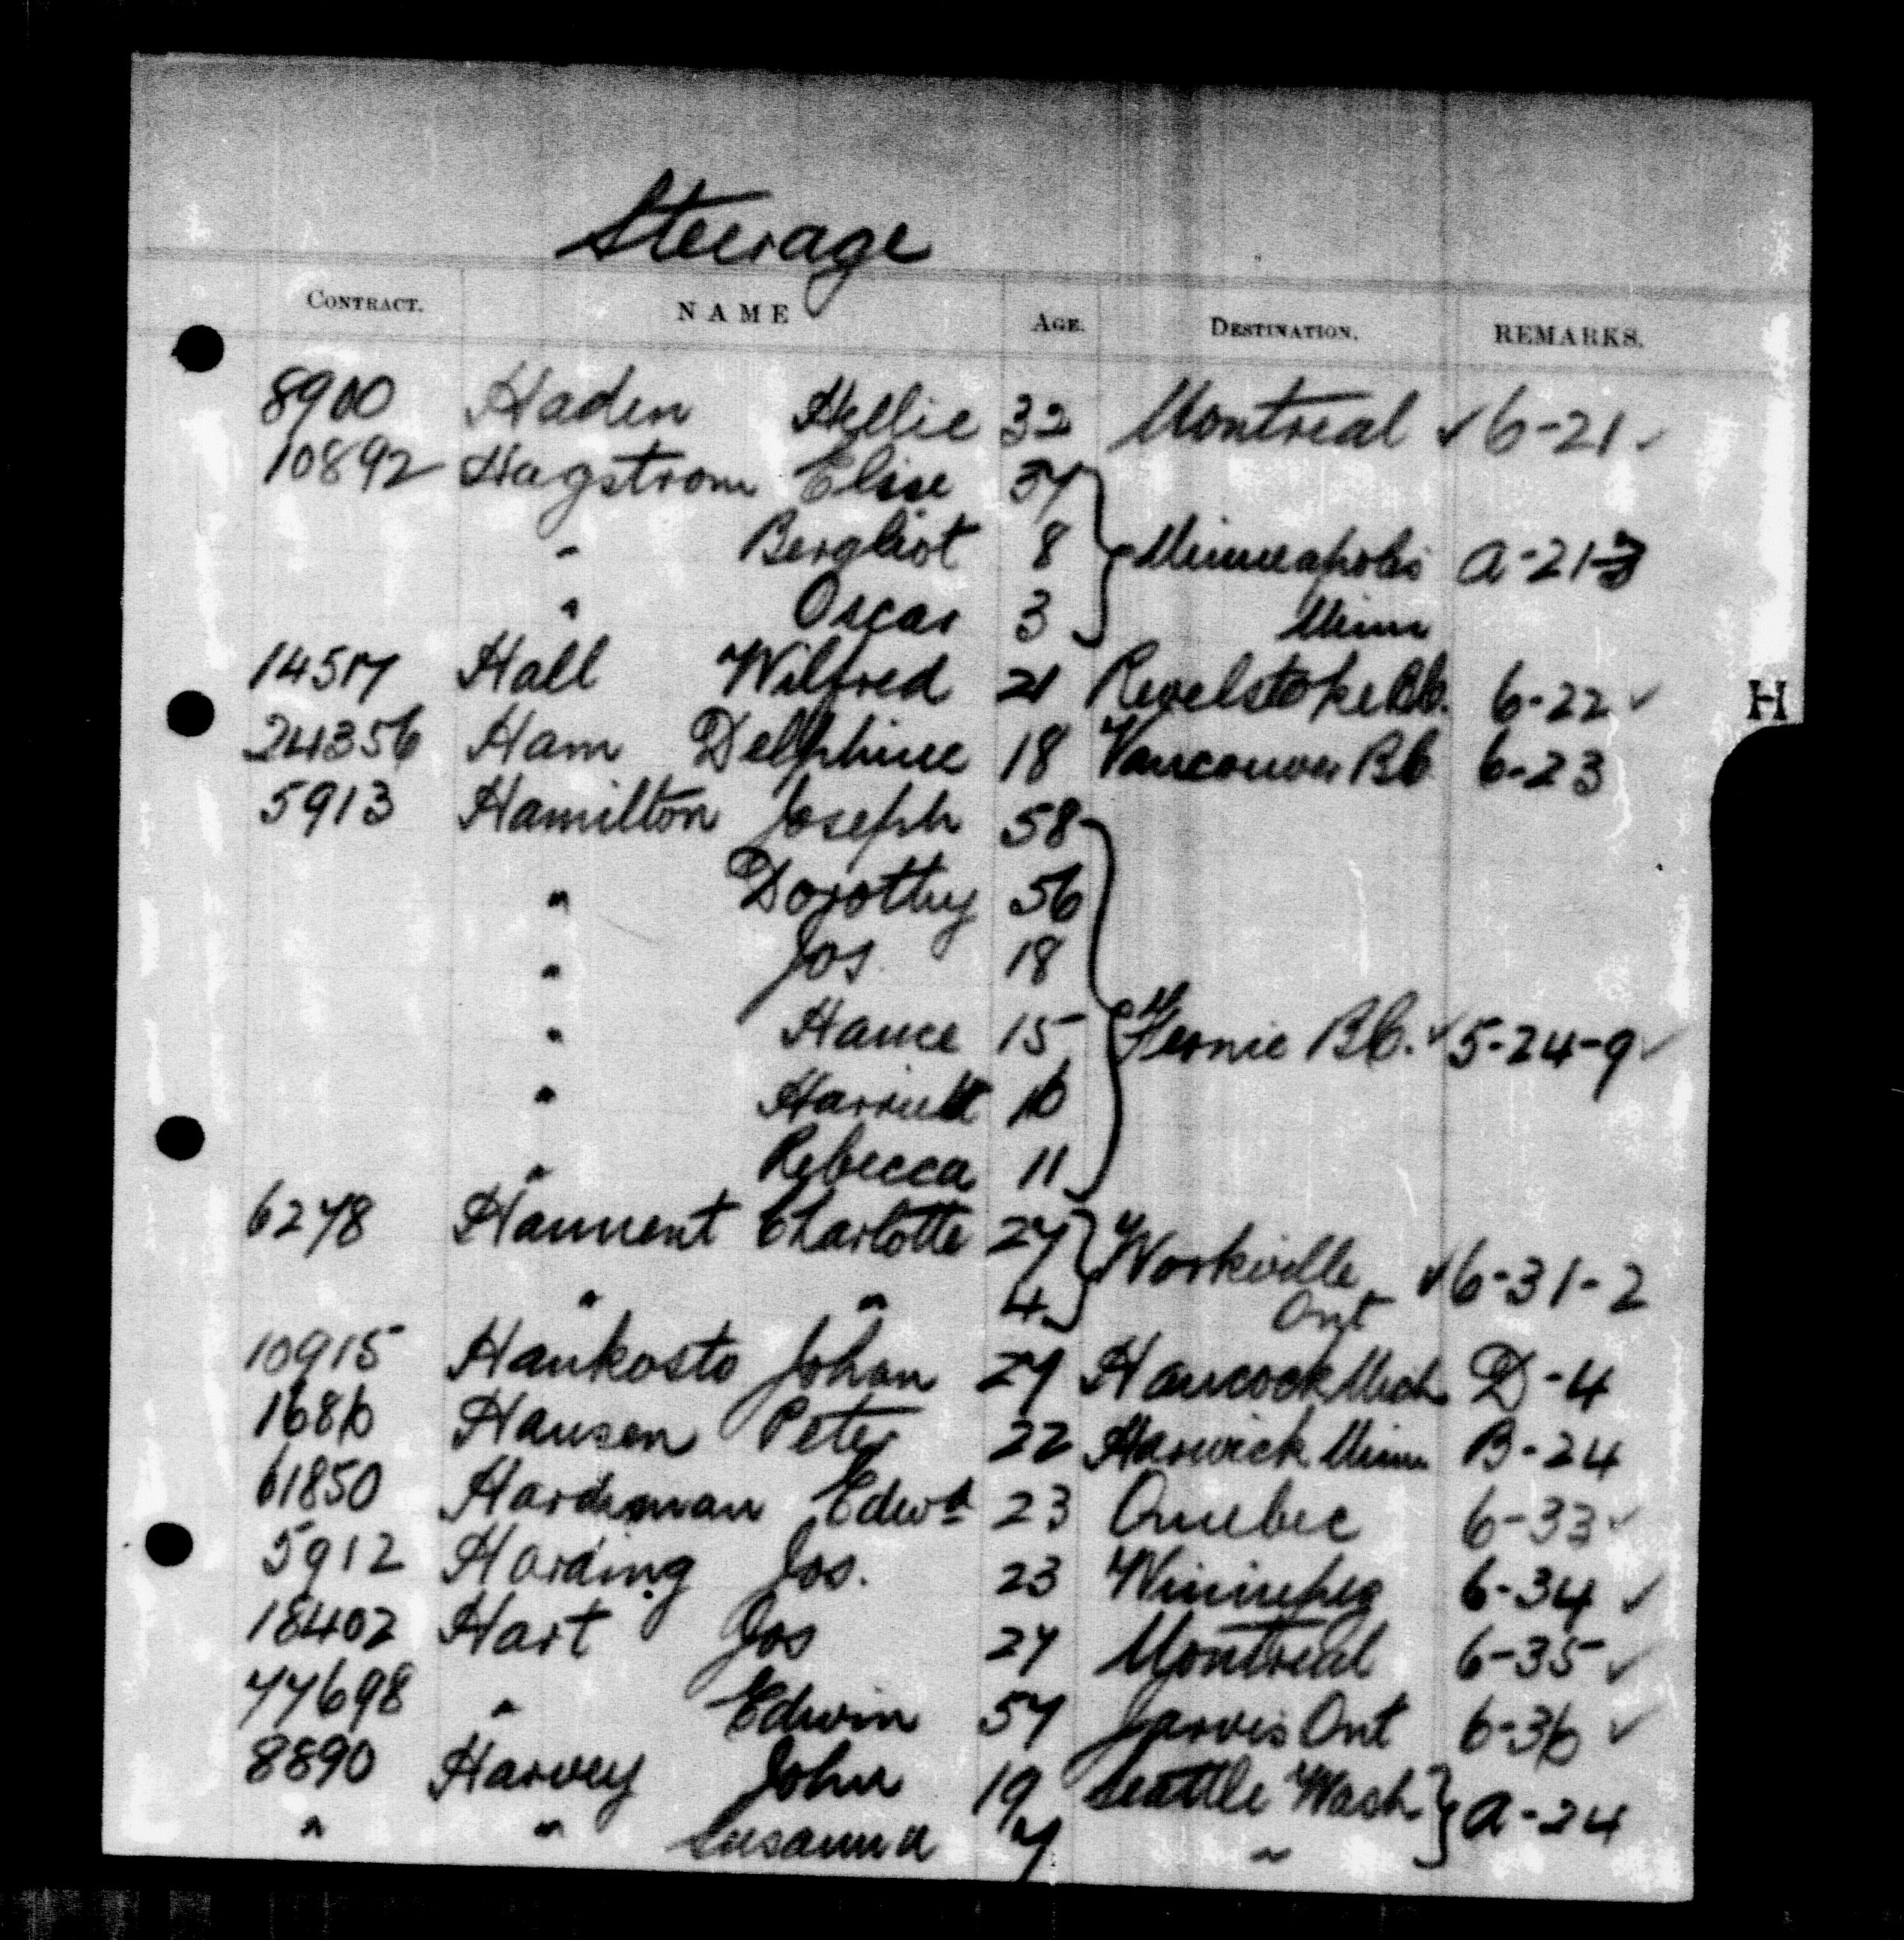 Steerage
CONTRACT. NAME AGE. DESTINATION. REMARKS.
8900 Haden Hellie 32 Montreal ✓ 6-21 ✓
10892 Hagstrom Elise 37
" Bergliot 8 Minneapolis A-21-3
" Oscar 3 Minn
14517 Hall Wilfred 21 Revelstoke B.C. 6-22 ✓
H
24356 Ham Dellphine 18 Vancouver BC 6-23
5913 Hamilton Joseph 58
" Dorothy 56
" Jos. 18
" Hance 15 Fernie B.C. ✓ 5-24-9 ✓
" Harriett 16
" Rebecca 11
6278 Hannent Charlotte 27 Workville ✓ 6-31-2
" " 4 Ont
10915 Hankosto Johan 27 Hancock Mich D-4
1686 Hansen Peter 22 Harwick Minn B-24
61850 Hardiman Edwd 23 Quebec 6-33 ✓
5912 Harding Jos. 23 Winnipeg 6-34 ✓
18402 Hart Jos 27 Montreal 6-35 ✓
77698 " Edwin 57 Jarvis Ont 6-36 ✓
8890 Harvey John 19 Seattle Wash A-24
" " Susanna "